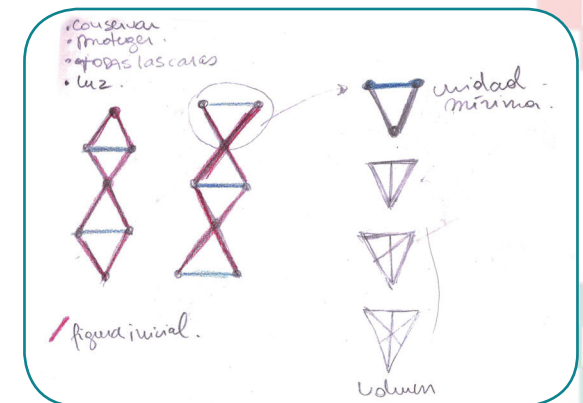 • Conservar
• proteger.
• TODAS las caras
• luz.
unidad
mínima.
figura inicial.
Volumen